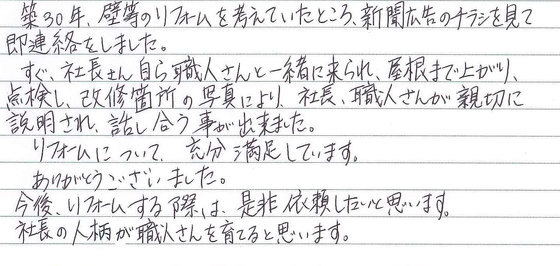 築30年、壁等のリフォームを考えていたところ、新聞広告のチラシを見て
即連絡をしました。
すぐ、社長さん自ら職人さんと一緒に来られ、屋根まで上がり、
点検し、改修箇所の写真により、社長、職人さんが親切に
説明され、話し合う事が出来ました。
リフォームについて、充分満足しています。
ありがとうございました。
今後、リフォームする際は、是非依頼したいと思います。
社長の人柄が職人さんを育てると思います。